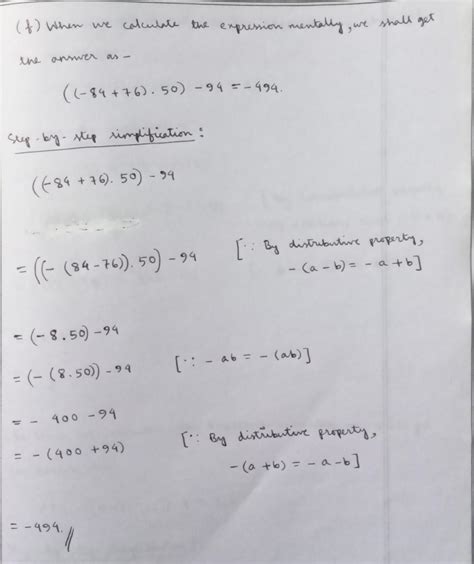 (f) When we calculate the expression mentally, we shall get
the answer as -
((-84+76).50)-94 = -494.
Step-by-step simplification:
((-84+76).50)-94
= ((-(84-76)).50)-94 [∵ By distributive property,
-(a-b) = -a+b]
= (-8.50)-94
= (-(8.50))-94 [∵ -ab = -(ab)]
= - 400 -94
= -(400+94) [∵ By distributive property,
-(a+b) = -a-b]
= -494.//